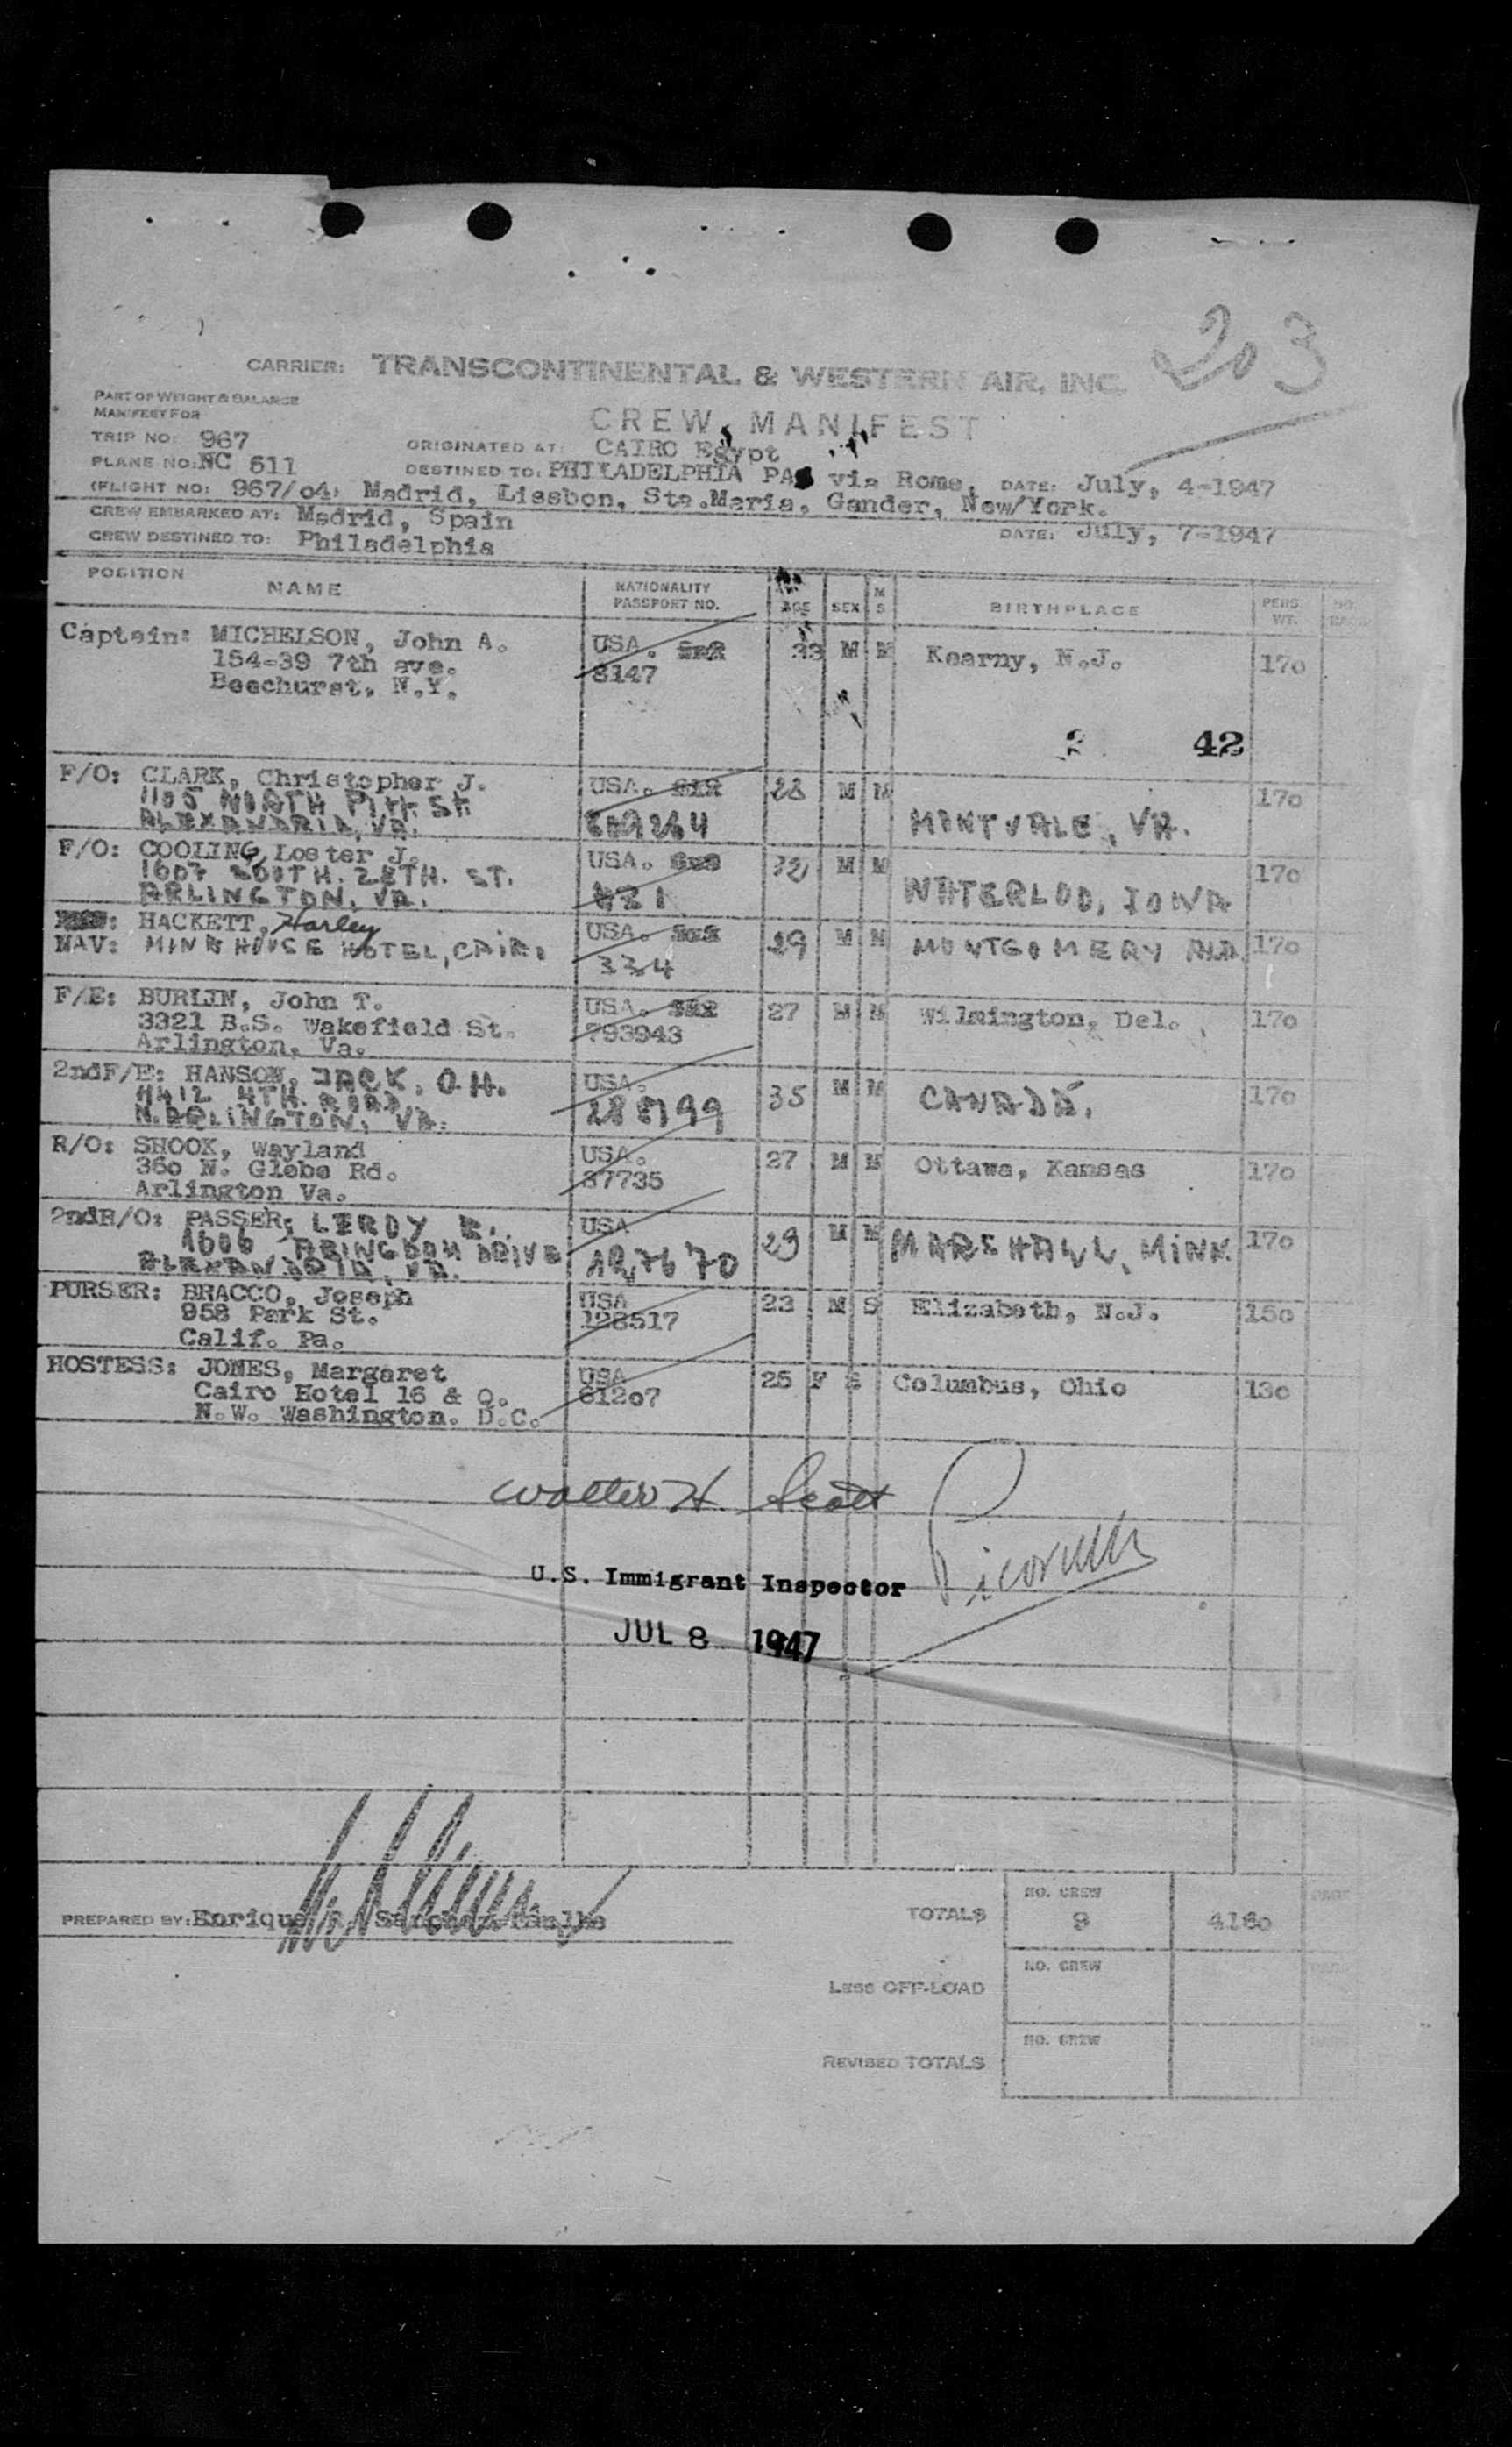 203
CARRIER: TRANSCONTINENTAL & WESTERN AIR, INC.
PART OF WEIGHT & BALANCE
MANIFEST FOR
CREW MANIFEST
TRIP NO: 967
ORIGINATED AT: CAIRO Egypt
PLANE NO: NC 611
DESTINED TO: PHILADELPHIA PA via Rome, DATE: July, 4-1947
(FLIGHT NO: 967/04) Madrid, Lissbon, Sta.Maria, Gander, New/York.
CREW EMBARKED AT: Madrid, Spain
CREW DESTINED TO: Philadelphia
DATE: July, 7-1947
POSITION NAME NATIONALITY PASSPORT NO. AGE SEX M S BIRTHPLACE PERS. WT.
Captain: MICHELSON, John A. USA. 33 M M Kearny, N.J. 170
154-39 7th ave. 8147
Beechurst, N.Y.
42
F/O: CLARK, Christopher J. USA. 28 M M 170
1105 NORTH PITT ST
ALEXANDRIA, VA. MONTVALE, VA.
F/O: COOLING, Loster J. USA. 32 M M 170
1607 SOUTH. 28TH. ST.
ARLINGTON, VA. 421 WATERLOO, IOWA
HACKETT, Harley USA. 29 M M MONTGOMERY ALA 170
NAV: MINA HOUSE HOTEL, CAIRO 334
F/E: BURLIN, John T. USA. 27 M M Wilmington, Del. 170
3321 B.S. Wakefield St. 793943
Arlington, Va.
2ndF/E: HANSON, JACK. O.H. USA. 35 M M CANADA. 170
4412 4TH. ROAD
N. ARLINGTON, VA.
R/O: SHOOK, Wayland USA. 27 M M Ottawa, Kansas 170
360 N. Glebe Rd. 37735
Arlington Va.
2ndR/O: PASSER, LEROY E. USA 29 M M MARSHALL, MINN 170
1606 ABINGDON DRIVE 127670
ALEXANDRIA, VA.
PURSER: BRACCO, Joseph USA 23 M S Elizabeth, N.J. 150
958 Park St. 128517
Calif. Pa.
HOSTESS: JONES, Margaret USA 25 F S Columbus, Ohio 130
Cairo Hotel 16 & Q. 61207
N.W. Washington. D.C.
Walter H Scott
U.S. Immigrant Inspector
JUL 8 1947
PREPARED BY: Enrique
TOTALS NO. CREW 9 4160
LESS OFF-LOAD NO. CREW
REVISED TOTALS NO. CREW